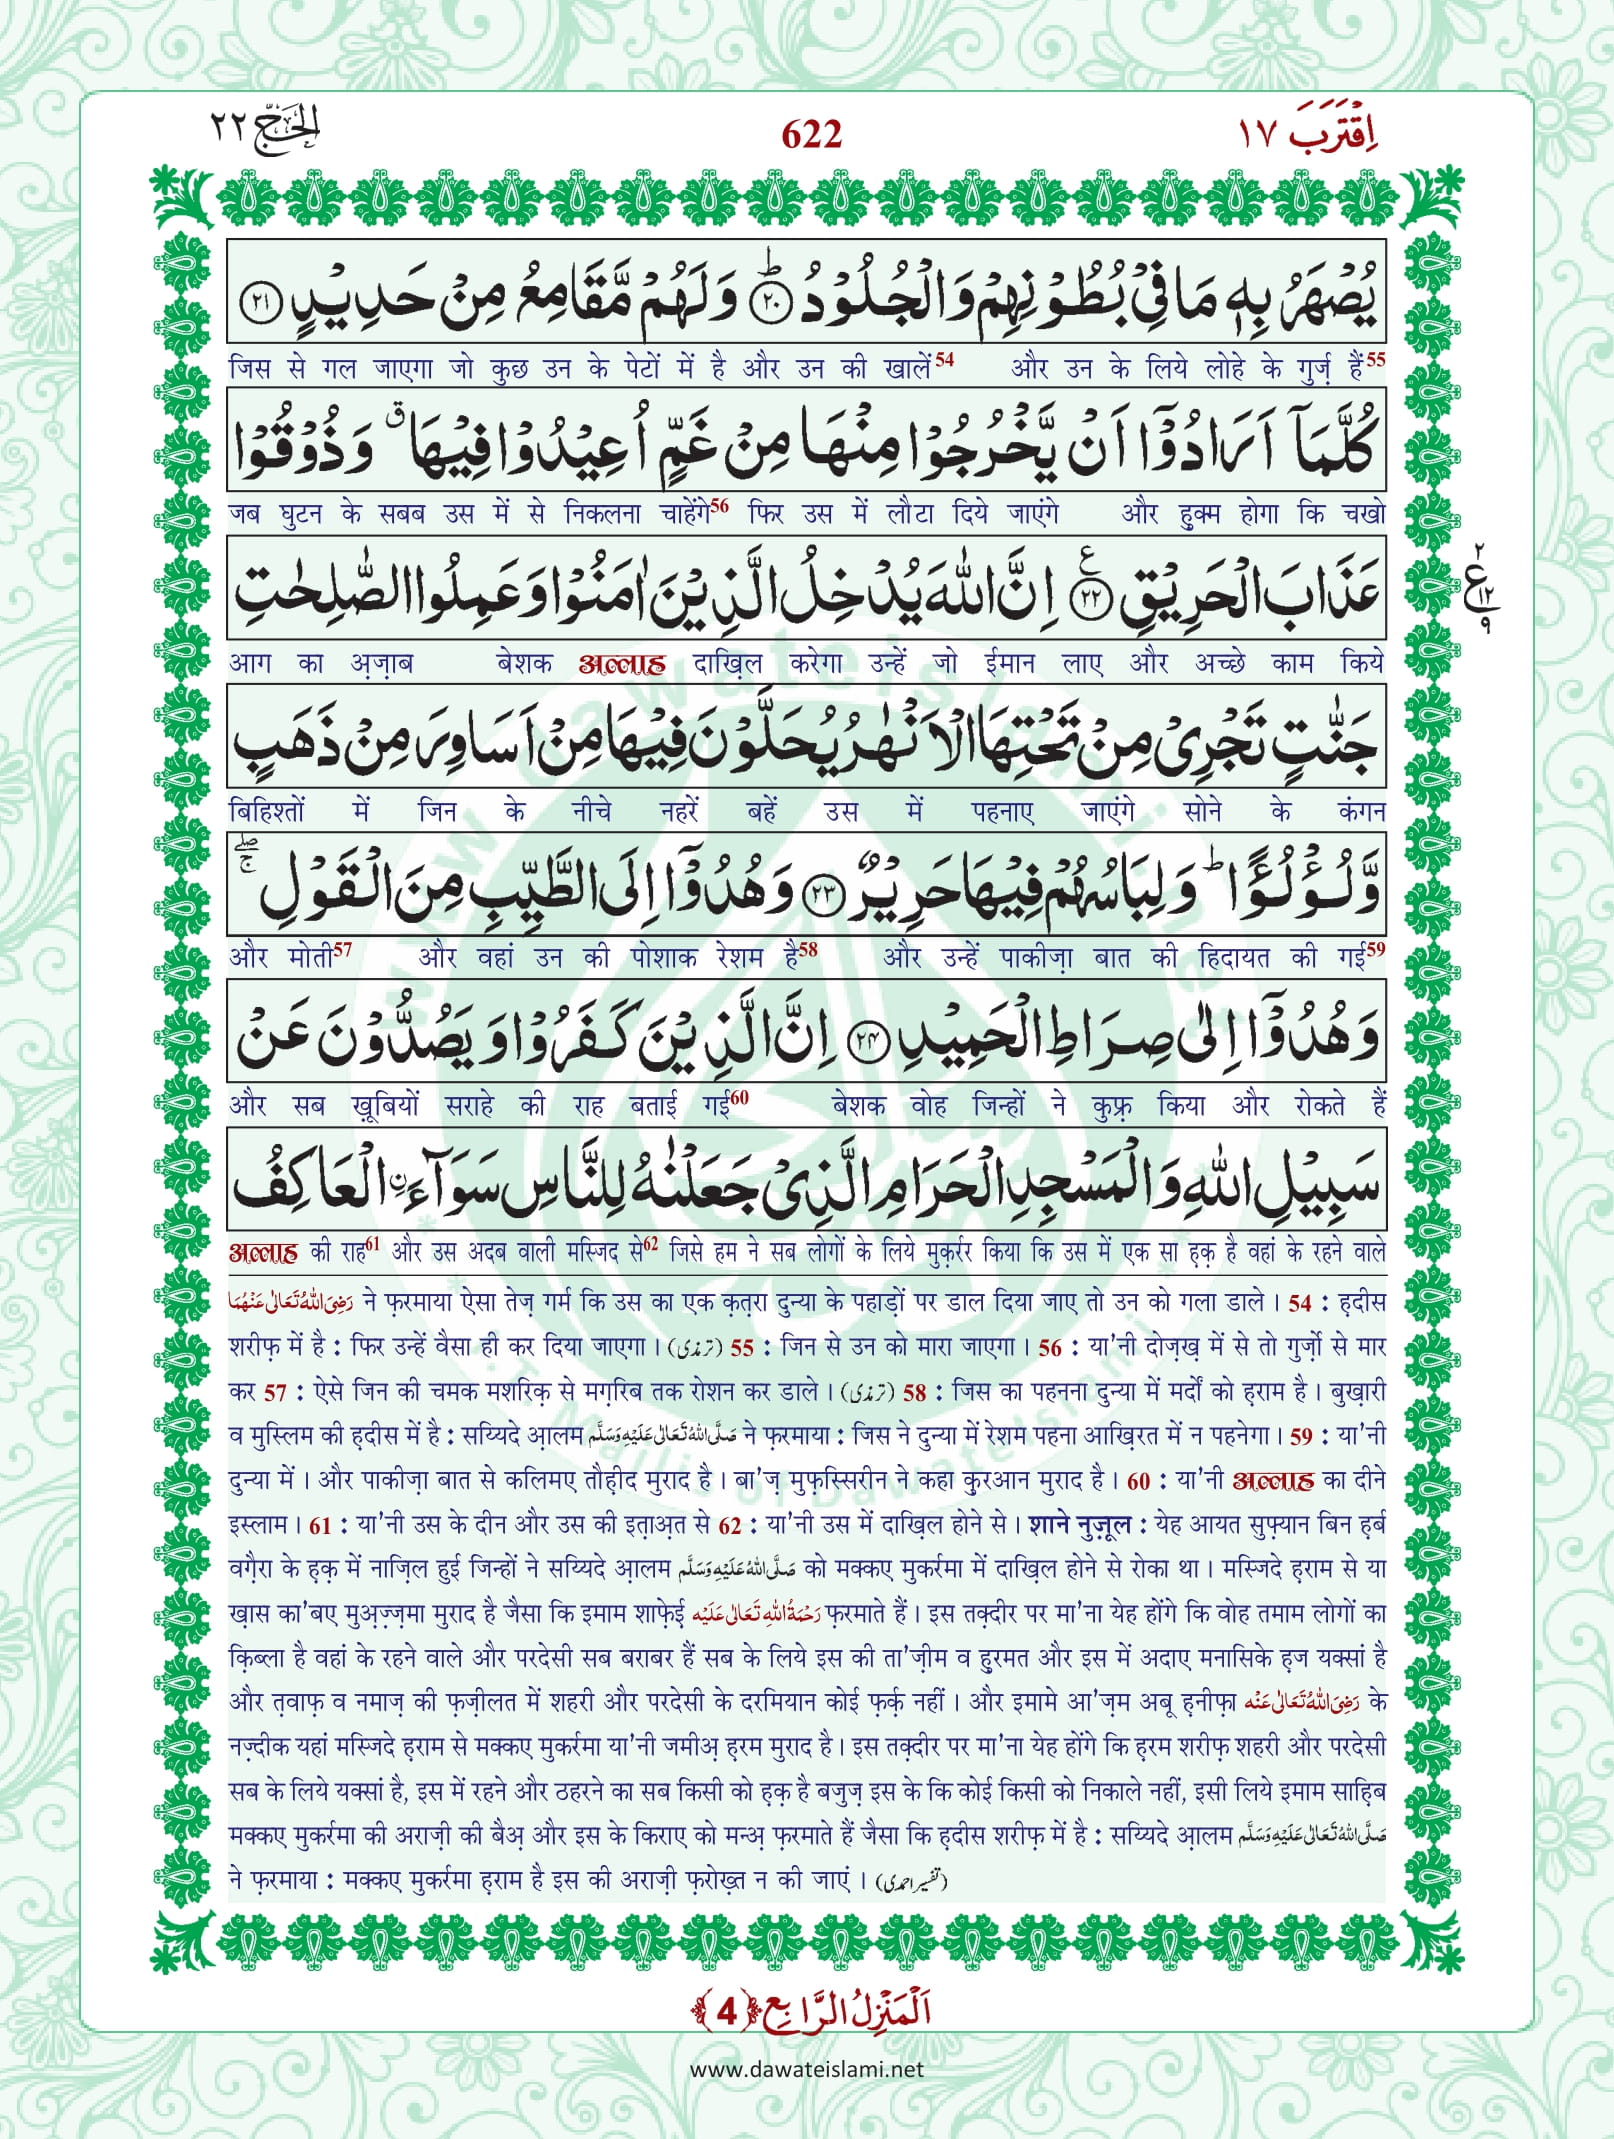 الحَجّ ٢٢
622
اِقْتَرَبَ ١٧
يُصْهَرُ بِهٖ مَا فِیْ بُطُوْنِهِمْ وَ الْجُلُوْدُؕ۝۲۰ وَ لَهُمْ مَّقَامِعُ مِنْ حَدِیْدٍ۝۲۱
जिस से गल जाएगा जो कुछ उन के पेटों में है और उन की खालें54 और उन के लिये लोहे के गुर्ज़ हैं55
كُلَّمَاۤ اَرَادُوْۤا اَنْ یَّخْرُجُوْا مِنْهَا مِنْ غَمٍّ اُعِیْدُوْا فِیْهَاۗ وَ ذُوْقُوْا
जब घुटन के सबब उस में से निकलना चाहेंगे56 फिर उस में लौटा दिये जाएंगे और हुक्म होगा कि चखो
عَذَابَ الْحَرِیْقِ۝۲۲ اِنَّ اللّٰهَ یُدْخِلُ الَّذِیْنَ اٰمَنُوْا وَ عَمِلُوا الصّٰلِحٰتِ
٢ ع ١٢ ٩
आग का अज़ाब बेशक अल्लाह दाख़िल करेगा उन्हें जो ईमान लाए और अच्छे काम किये
جَنّٰتٍ تَجْرِیْ مِنْ تَحْتِهَا الْاَنْهٰرُ یُحَلَّوْنَ فِیْهَا مِنْ اَسَاوِرَ مِنْ ذَهَبٍ
बिहिश्तों में जिन के नीचे नहरें बहें उस में पहनाए जाएंगे सोने के कंगन
وَّ لُؤْلُؤًاؕ وَ لِبَاسُهُمْ فِیْهَا حَرِیْرٌ۝۲۳ وَ هُدُوْۤا اِلَى الطَّیِّبِ مِنَ الْقَوْلِ ۚۖ
और मोती57 और वहां उन की पोशाक रेशम है58 और उन्हें पाकीज़ा बात की हिदायत की गई59
وَ هُدُوْۤا اِلٰى صِرَاطِ الْحَمِیْدِ۝۲۴ اِنَّ الَّذِیْنَ كَفَرُوْا وَ یَصُدُّوْنَ عَنْ
और सब ख़ूबियों सराहे की राह बताई गई60 बेशक वोह जिन्हों ने कुफ़्र किया और रोकते हैं
سَبِیْلِ اللّٰهِ وَ الْمَسْجِدِ الْحَرَامِ الَّذِیْ جَعَلْنٰهُ لِلنَّاسِ سَوَآءَ اِ۟لْعَاكِفُ
अल्लाह की राह61 और उस अदब वाली मस्जिद से62 जिसे हम ने सब लोगों के लिये मुक़र्रर किया कि उस में एक सा हक़ है वहां के रहने वाले
رَضِیَ اللّٰهُ تَعَالٰی عَنْهُمَا ने फ़रमाया ऐसा तेज़ गर्म कि उस का एक क़त़रा दुन्या के पहाड़ों पर डाल दिया जाए तो उन को गला डाले। 54 : ह़दीस
शरीफ़ में है : फिर उन्हें वैसा ही कर दिया जाएगा। (ترمذی) 55 : जिन से उन को मारा जाएगा। 56 : या'नी दोज़ख़ में से तो गुर्ज़ों से मार
कर 57 : ऐसे जिन की चमक मशरिक़ से मग़रिब तक रोशन कर डाले। (ترمذی) 58 : जिस का पहनना दुन्या में मर्दों को ह़राम है। बुख़ारी
व मुस्लिम की ह़दीस में है : सय्यिदे आ़लम صَلَّی اللّٰهُ تَعَالٰی عَلَیْهِ وَسَلَّم ने फ़रमाया : जिस ने दुन्या में रेशम पहना आख़िरत में न पहनेगा। 59 : या'नी
दुन्या में। और पाकीज़ा बात से कलिमए तौह़ीद मुराद है। बा'ज़ मुफ़स्सिरीन ने कहा क़ुरआन मुराद है। 60 : या'नी अल्लाह का दीने
इस्लाम। 61 : या'नी उस के दीन और उस की इत़ाअ़त से 62 : या'नी उस में दाख़िल होने से। शाने नुज़ूल : येह आयत सुफ़्यान बिन ह़र्ब
वग़ैरा के ह़क़ में नाज़िल हुई जिन्हों ने सय्यिदे आ़लम صَلَّی اللّٰهُ عَلَیْهِ وَسَلَّم को मक्कए मुकर्रमा में दाख़िल होने से रोका था। मस्जिदे ह़राम से या
ख़ास का'बए मुअ़ज़्ज़मा मुराद है जैसा कि इमाम शाफ़ेई رَحْمَةُ اللّٰهِ تَعَالٰی عَلَیْه फ़रमाते हैं। इस तक़्दीर पर मा'ना येह होंगे कि वोह तमाम लोगों का
क़िब्ला है वहां के रहने वाले और परदेसी सब बराबर हैं सब के लिये इस की ता'ज़ीम व हुरमत और इस में अदाए मनासिके ह़ज यक्सां है
और त़वाफ़ व नमाज़ की फ़ज़ीलत में शहरी और परदेसी के दरमियान कोई फ़र्क़ नहीं। और इमामे आ'ज़म अबू ह़नीफ़ा رَضِیَ اللّٰهُ تَعَالٰی عَنْه के
नज़्दीक यहां मस्जिदे ह़राम से मक्कए मुकर्रमा या'नी जमीअ़ ह़रम मुराद है। इस तक़्दीर पर मा'ना येह होंगे कि ह़रम शरीफ़ शहरी और परदेसी
सब के लिये यक्सां है, इस में रहने और ठहरने का सब किसी को ह़क़ है बजुज़ इस के कि कोई किसी को निकाले नहीं, इसी लिये इमाम साह़िब
मक्कए मुकर्रमा की अराज़ी की बैअ़ और इस के किराए को मन्अ़ फ़रमाते हैं जैसा कि ह़दीस शरीफ़ में है : सय्यिदे आ़लम صَلَّی اللّٰهُ تَعَالٰی عَلَیْهِ وَسَلَّم
ने फ़रमाया : मक्कए मुकर्रमा ह़राम है इस की अराज़ी फ़रोख़्त न की जाएं। (تفسیر احمدی)
اَلْمَنْزِلُ الرَّابِع ﴿4﴾
www.dawateislami.net